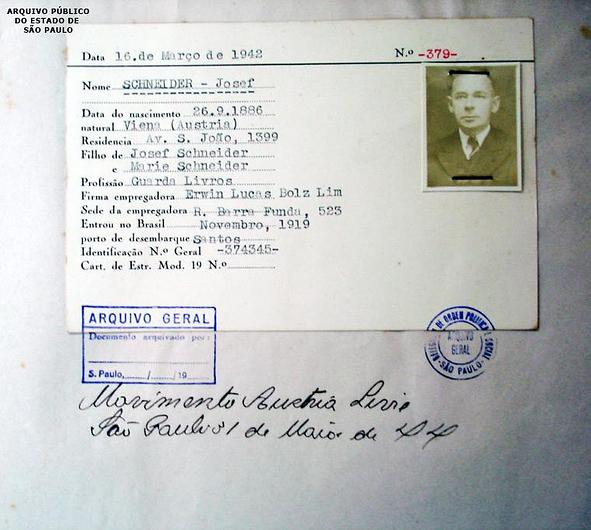 ARQUIVO PÚBLICO
DO ESTADO DE
SÃO PAULO
Data 16.de Março de 1942 N.º -379-
Nome SCHNEIDER - Josef
Data do nascimento 26.9.1886
natural Viena (Austria)
Residencia Av. S. João, 1399
Filho de Josef Schneider
e Marie Schneider
Profissão Guarda Livros
Firma empregadora Erwin Lucas Bolz Lim
Sede da empregadora R. Barra Funda, 523
Entrou no Brasil Novembro, 1919
porto de desembarque Santos
Identificação N.º Geral -374345-
Cart. de Estr. Mod. 19 N.º
ARQUIVO GERAL
Documento arquivado por:
S. Paulo, / / 19
DE ORDEM POLITICA E SOCIAL
ARQUIVO
GERAL
SÃO PAULO
Movimento Austria Livre
São Paulo 31 de Maio de 44